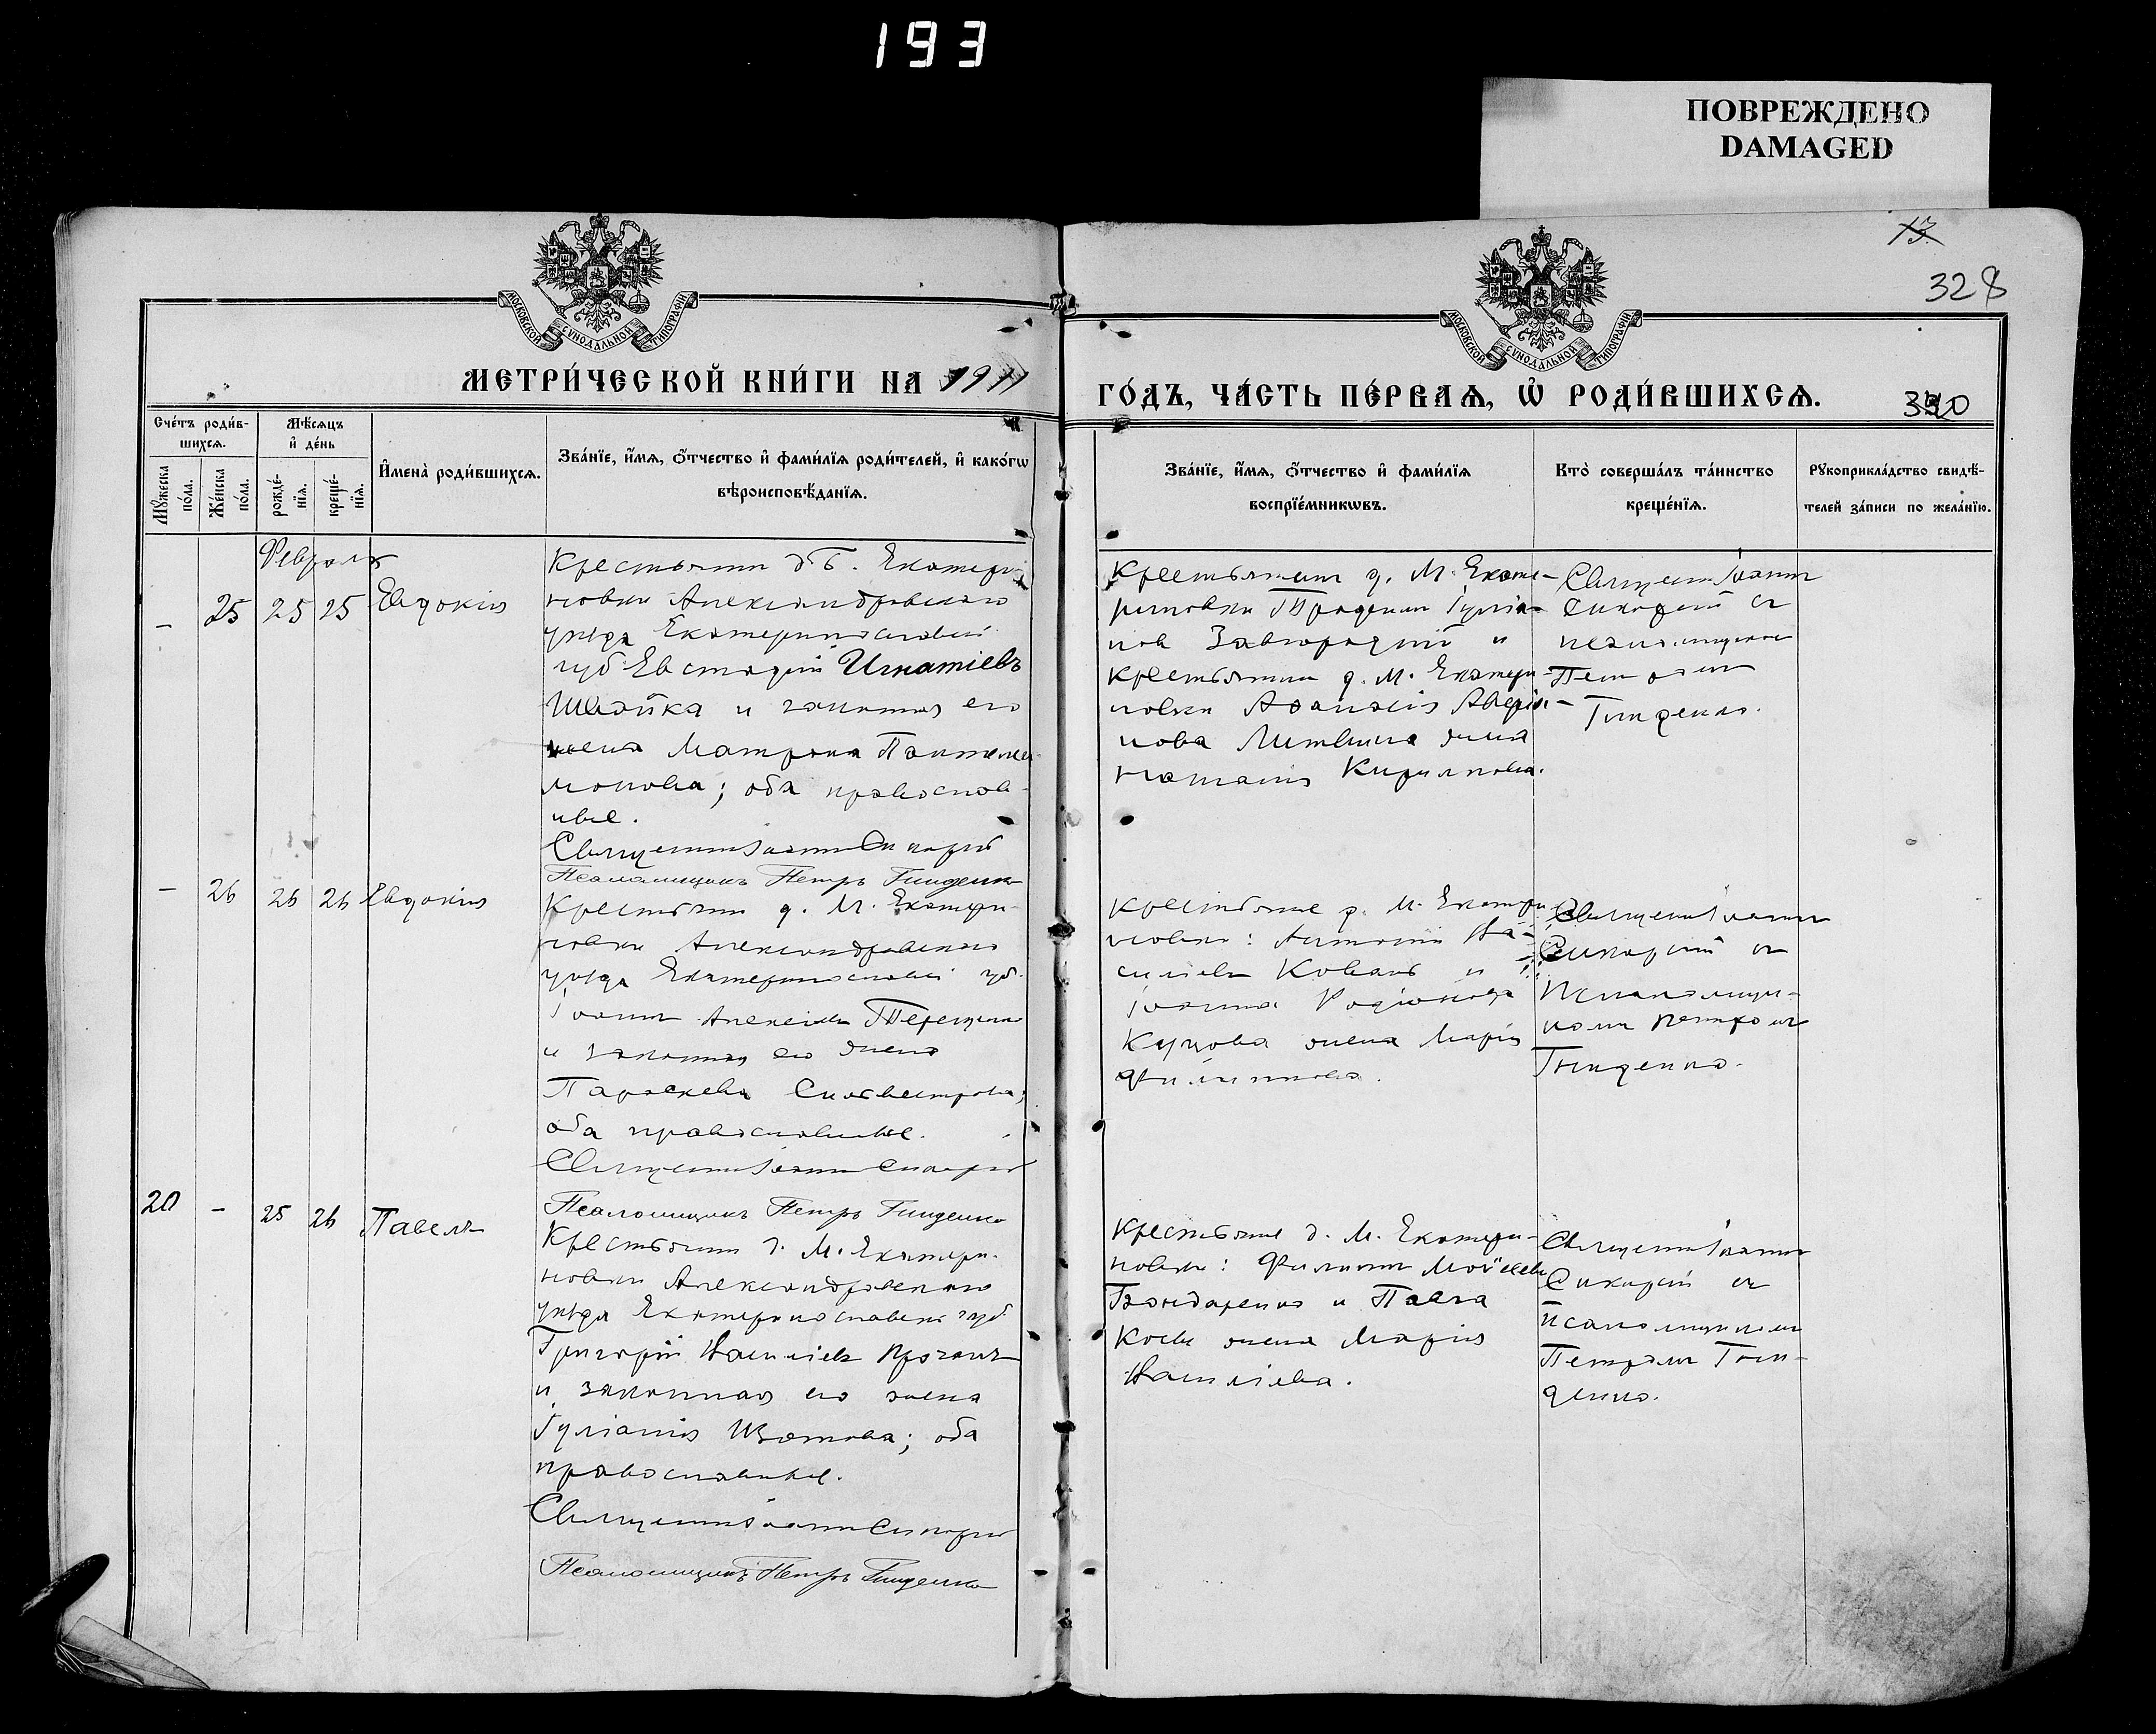 193
ПОВРЕЖДЕНО
DAMAGED
13
328
МОСКОВСКОЙ СУНОДАЛЬНОЙ ТИПОГРАФІИ
МОСКОВСКОЙ СУНОДАЛЬНОЙ ТИПОГРАФІИ
МЕТРИ́ЧЕСКОЙ КНИ́ГИ НА 1911
ГО́ДЪ, ЧА́СТЬ ПЕ́РВАѦ, Ѡ҆ РОДИ́ВШИХСѦ.
Сче́тъ роди́в-
шихсѧ.
Мꙋ́жеска
по́ла.
Же́нска
по́ла.
Мѣ́сѧцъ
и҆ де́нь
рожде́-
нїѧ.
креще́-
нїѧ.
И҆мена̀ роди́вшихсѧ.
Зва́нїе, и҆́мѧ, ѻ҆́тчество и҆ фами́лїѧ роди́телей, и҆ како́гѡ
вѣроисповѣ́данїѧ.
Зва́нїе, и҆́мѧ, ѻ҆́тчество и҆ фами́лїѧ
воспрїе́мникѡвъ.
Кто̀ соверша́лъ та́инство
креще́нїѧ.
Рꙋкоприкла́дство свидѣ́-
телей за́писи по жела́нїю.
Февраль
— 25 25 25 Евдокія
Екатери-
новки Александровскаго
уѣзда Екатеринославской
губ. Евстафій Игнатіевъ
Швайка и законная его
жена Матрона Пантелеи-
монова; оба православ-
ные.
Священникъ Іоаннъ Сикорскій
Псаломщикъ Петръ Гниденко
Крестьянинъ д. М. Екате-
риновки
Завгородній и
крестьянина д. М. Екатери-
новки
нова Литвина жена
Наталія Кириллова.
Священникъ Іоаннъ
Сикорскій съ
псаломщикомъ
Петромъ
Гниденко.
— 26 26 26 Евдокія
Крестьянинъ д. М. Екатери-
новки Александровскаго
уѣзда Екатеринославской губ.
Іоаннъ Алексіевъ Терещенко
и законная его жена
Параскева Сильвестрова;
оба православные.
Священникъ Іоаннъ Сикорскій
Псаломщикъ Петръ Гниденко
Крестьяне д. М. Екатери-
новки: Антоній Ва-
силіевъ Коваль и
Іоанна Родіонова
Куцова жена Марія
Филиппова.
Священникъ Іоаннъ
Сикорскій съ
псаломщи-
комъ Петромъ
Гниденко.
20 — 25 26 Павелъ
Крестьянинъ д. М. Екатери-
новки Александровскаго
уѣзда Екатеринославской губ.
Григорій Василіевъ
и законная его жена
Іуліанія Изотова; оба
православные.
Священникъ Іоаннъ Сикорскій
Псаломщикъ Петръ Гниденко
Крестьяне д. М. Екатери-
новки: Филиппъ Мойсеевъ
Бондаренко и Павла
жена Марія
Василіева.
Священникъ Іоаннъ
Сикорскій съ
псаломщикомъ
Петромъ Гни-
денко.